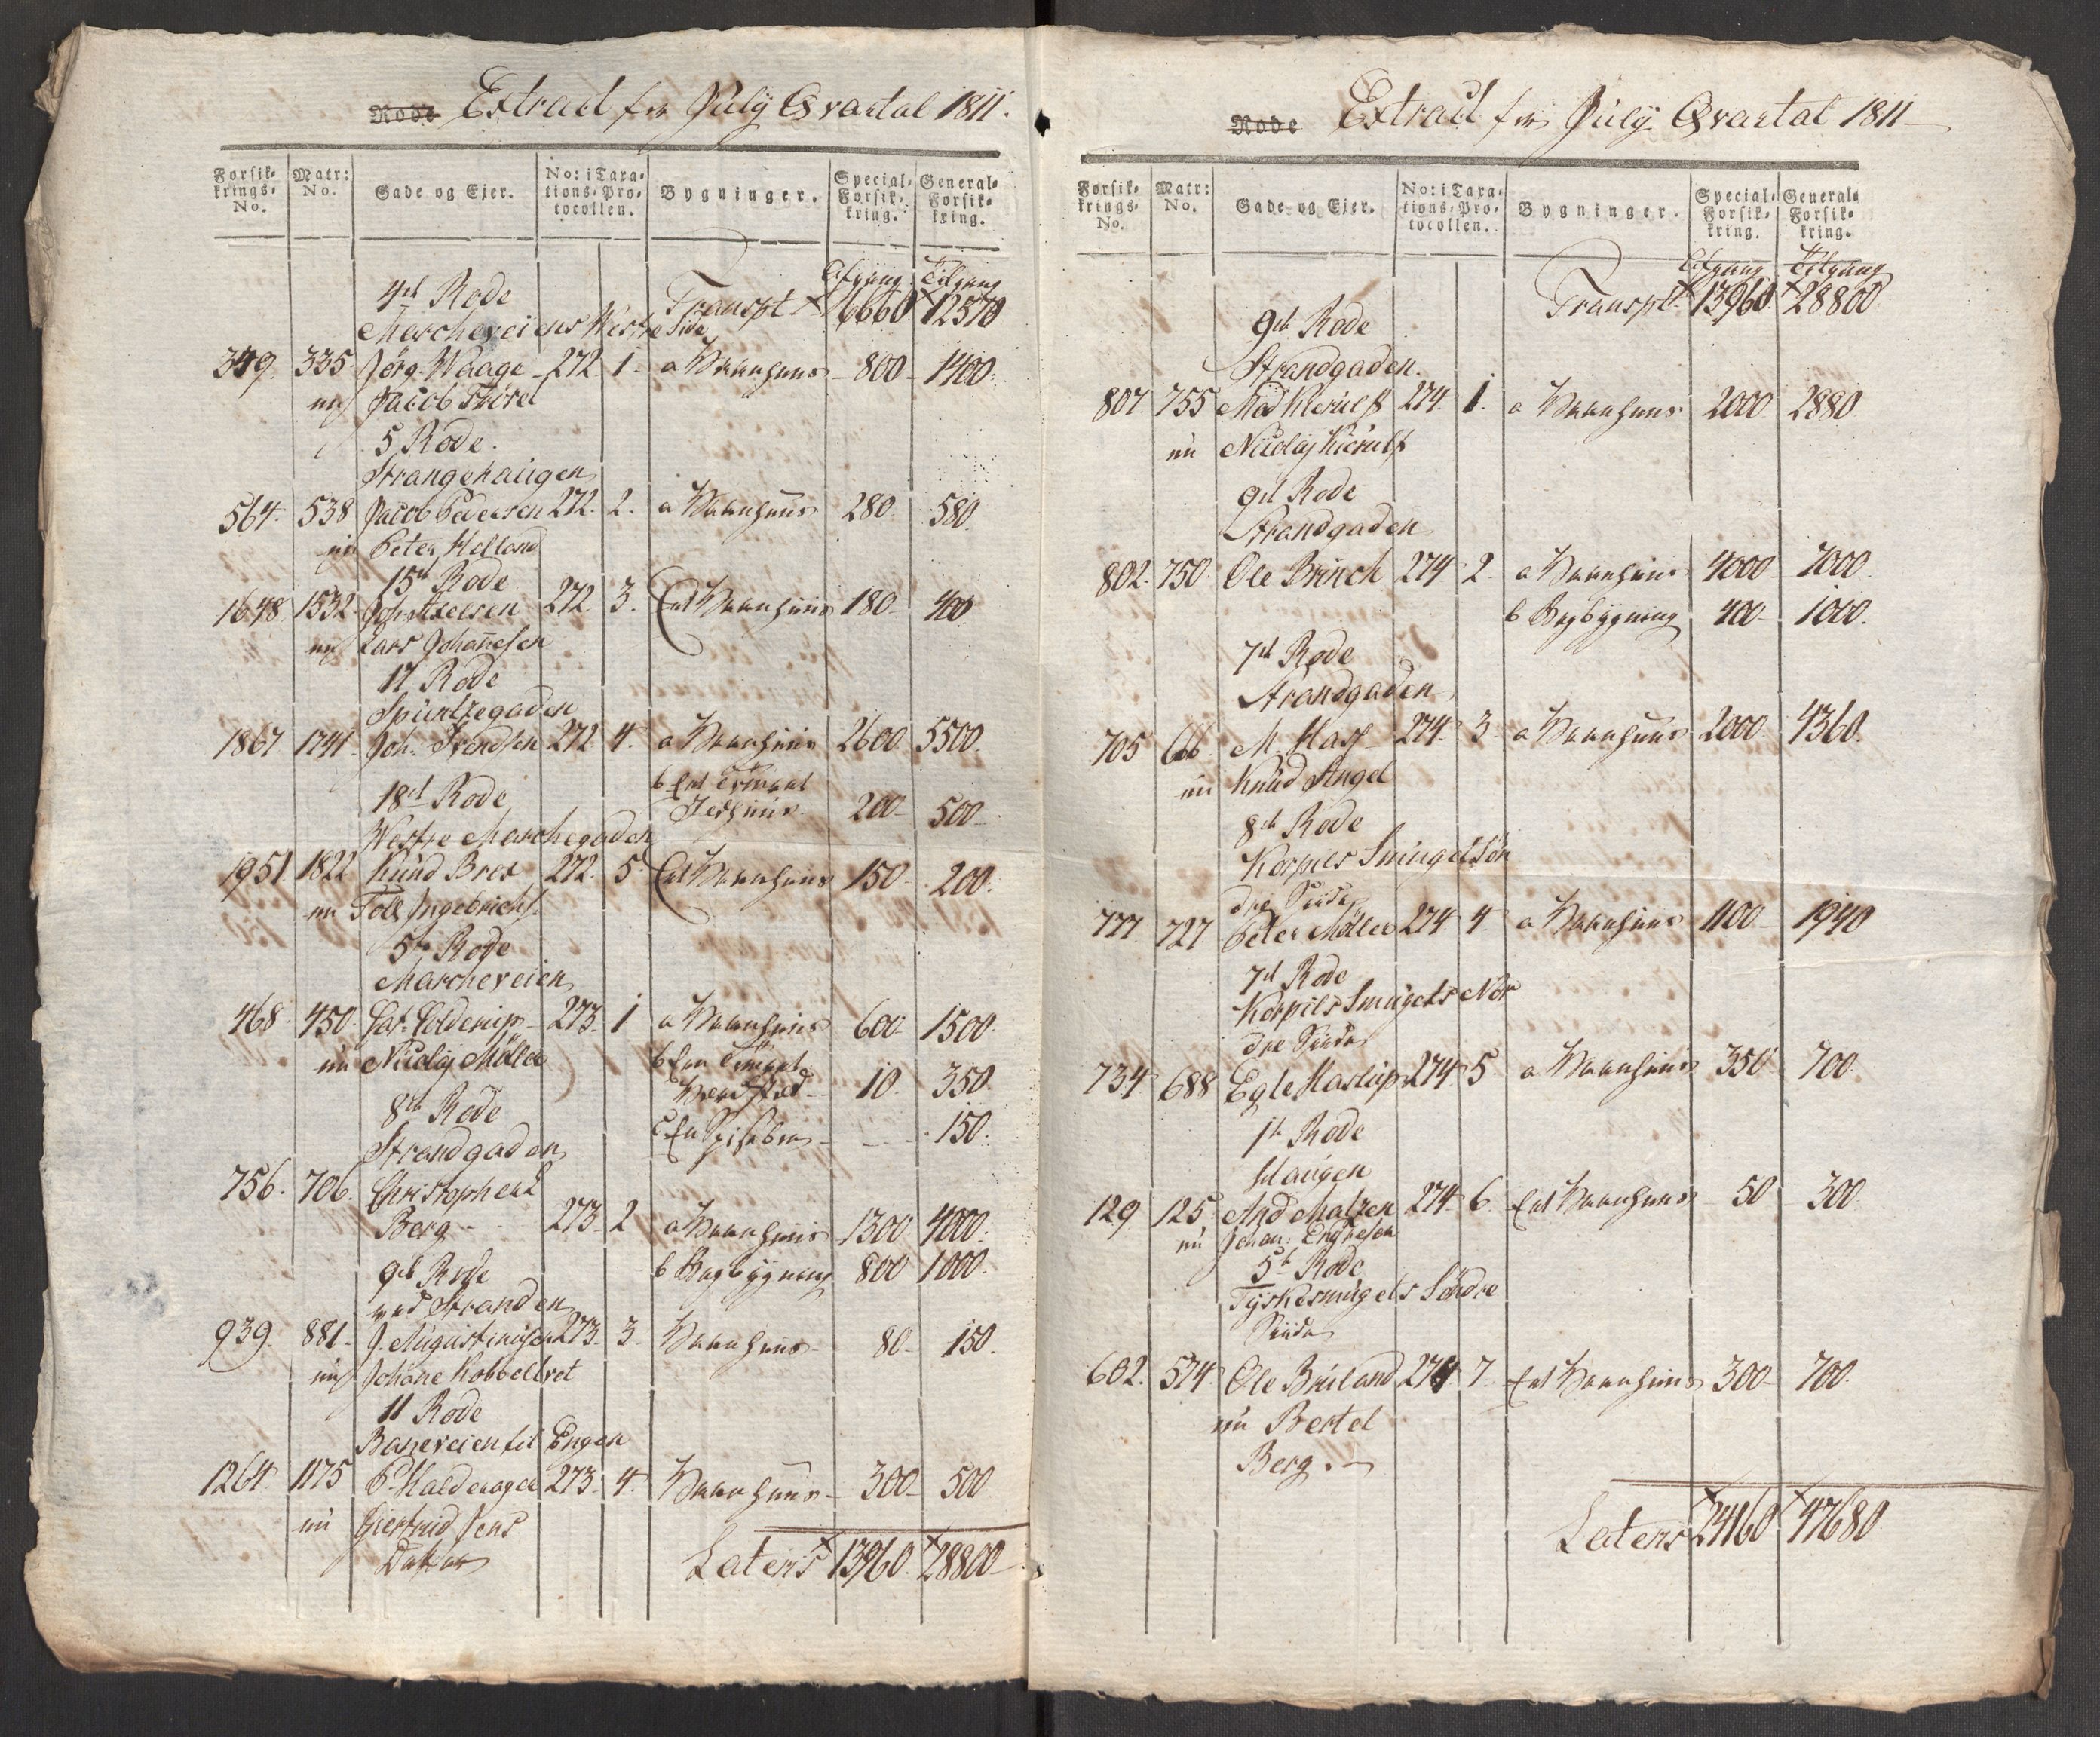 Rode Extract for July Qvartal 1811.
Forsik-krings-No. | Matr: No. | Gade og Ejer. | No: i Taxa-tions-Pro-tocollen. | Bygninger. | Special-Forsik-kring. | General-Forsik-kring.
Afgang Tilgang
4de Rode Transpt 6660 12570
Marcheveiens Westre Side
349. 335 Jörg. Waage 272 1. a Vaanhuus 800 1400.
nu Jacob
5 Rode.
Strangehaugen
564. 538 Jacob Pedersen 272. 2. a Vaanhuus 280 580.
nu Peter Helland
15de Rode
1648. 1532 272 3. Eet Vaanhuus 180 400
nu Lars Johannesen
17 Rode
Spuntzegaden
1867 1741 Joh. Svendsen 272 4. a Vaanhuus 2600 5500.
b Eet
18de Rode 200 500
Westre Marchegaden
1951 1822 Knud Bret 272. 5. Eet Vaanhuus 150 200.
nu Ingebrichs.
5te Rode
Marcheveien
468. 450. Golderup 273. 1 a Vaanhuus 600 1500.
nu Nicolaj Möller b Een
10. 350.
8de Rode c En 150.
Strandgaden
756. 706. Christopher
Berg 273 2 a Vaanhuus 1300 4000.
9de Rode b Bagbÿgning 800 1000.
ved Stranden
939. 881. J. Augustinusen 273. 3. Vaanhuus 80 150.
nu Johane Kobbeltvet
11 Rode
Baneveien til Engen
1264. 1175 P. Haldenager 273. 4. Vaanhuus 300 500
nu Giertrud Jens
Datter Lateris 13960. 28800
Rode Extract for Julÿ Qvartal 1811
Forsik-krings-No. | Matr: No. | Gade og Ejer. | No: i Taxa-tions-Pro-tocollen. | Bygninger. | Special-Forsik-kring. | General-Forsik-kring.
Afgang Tilgang
Transpt 13960. 28800
9de Rode
Strandgaden.
807 755 Mad Kierulf 274. 1. a Vaanhuus 2000 2880
nu Nicolaj Kierulf
9de Rode
Strandgaden
802. 750. Ole Brinch 274 2. a Vaanhuus 4000 7000.
b Bagbÿgning 400 1000.
7de Rode
Strandgaden
705 666 M. Hass 274. 3 a Vaanhuus 2000 4360.
nu Knud Angel
8de Rode
Korpils Smuget Sön
dre Siide
777. 727 Peter Möller 274 4. a Vaanhuus 1100 1940
7de Rode
Korpils Smugets Nor
dre Siide
734 688 Egle Hastup 274 5 a Vaanhuus 350 700
1te Rode
Haugen
129 125. And Matzen 274. 6. Eet Vaanhuus 50 300
nu Johan:
5te Rode
Tÿskesmugets Söndre
Siide
602. 574. Ole Bruland 274 7. Eet Vaanhuus 300 700.
nu Bertel
Berg.
Lateris 24160 47680